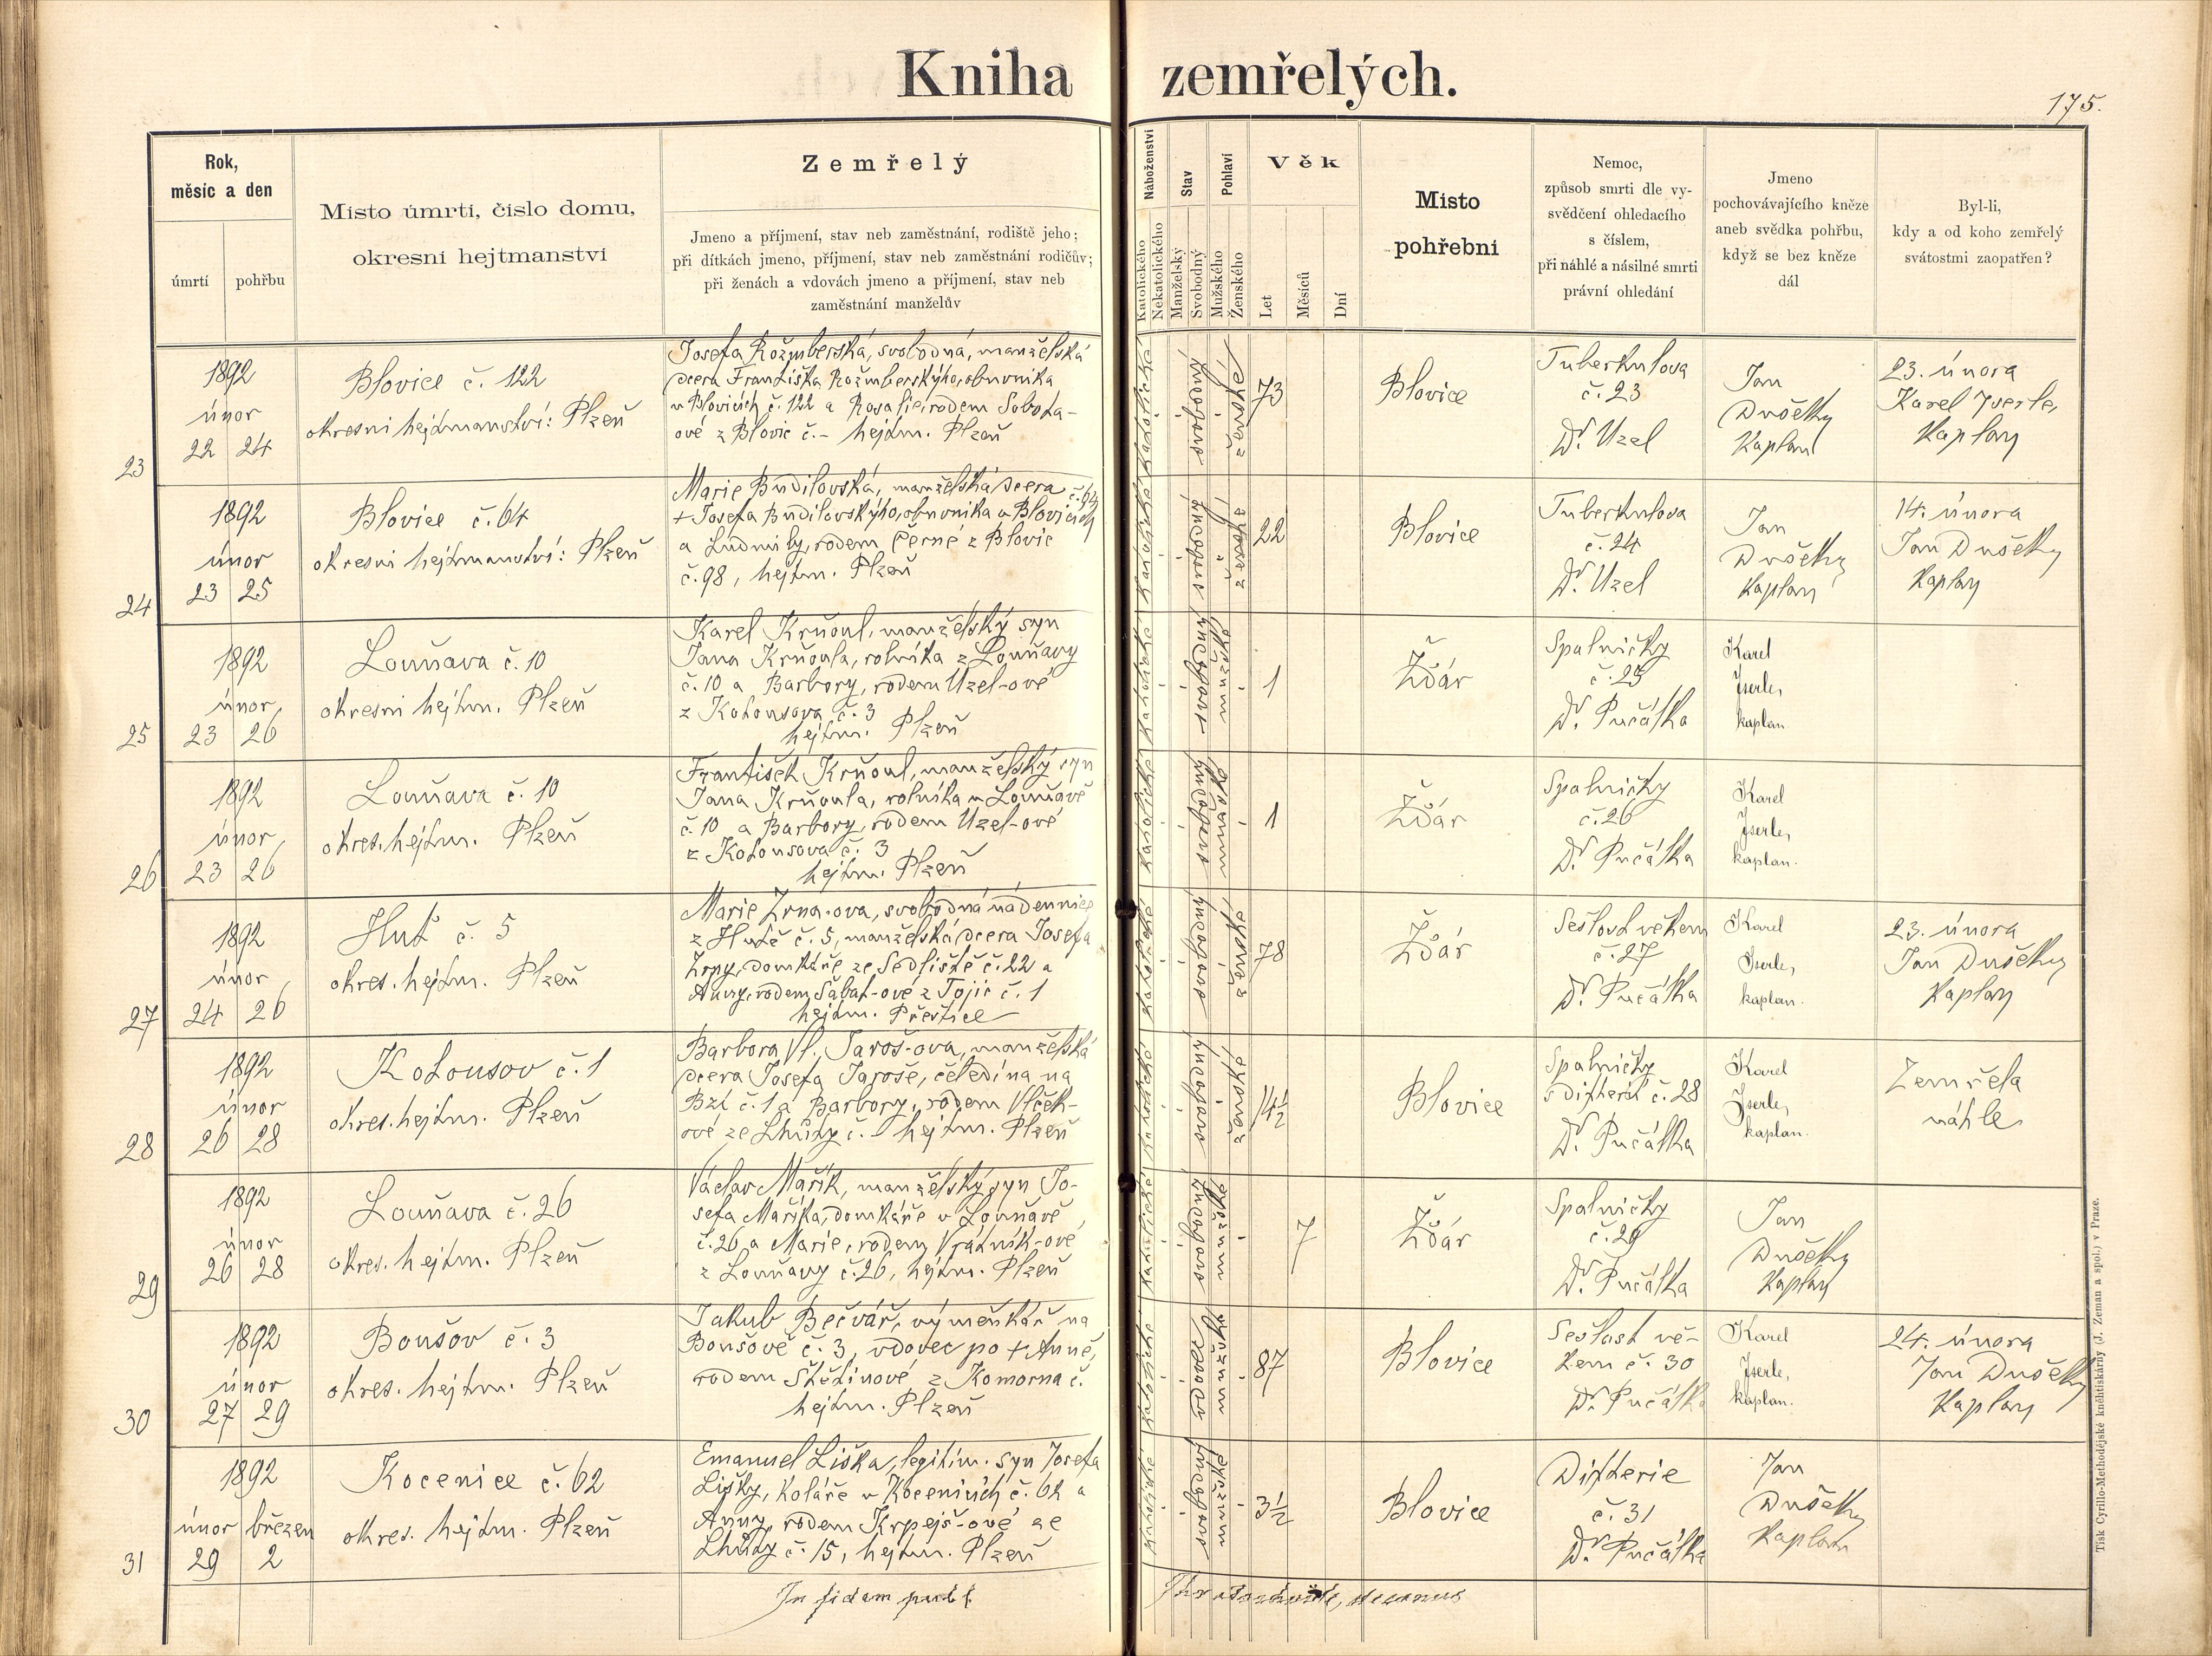 Kniha zemřelých.
175.
Rok,
měsíc a den
úmrtí
pohřbu
Místo úmrtí, číslo domu,
okresní hejtmanství
Zemřelý
Jmeno a příjmení, stav neb zaměstnání, rodiště jeho;
při dítkách jmeno, příjmení, stav neb zaměstnání rodičův;
při ženách a vdovách jmeno a příjmení, stav neb
zaměstnání manželův
Náboženství
Katolického
Nekatolického
Stav
Manželský
Svobodný
Pohlaví
Mužského
Ženského
Věk
Let
Měsíců
Dní
Místo
pohřební
Nemoc,
způsob smrti dle vy-
svědčení ohledacího
s číslem,
při náhlé a násilné smrti
právní ohledání
Jmeno
pochovávajícího kněze
aneb svědka pohřbu,
když se bez kněze
dál
Byl-li,
kdy a od koho zemřelý
svátostmi zaopatřen?
23
1892
únor
22 24
Blovice č. 122
okresní hejtmanství: Plzeň
Josefa Rožmberská, svobodná, manželská
dcera Františka Rožmberskýho, obuvníka
v Blovicích č. 122 a Rosalie, rodem Sobota-
ové z Blovic č. - hejtm. Plzeň
katolické
svobodný
ženské
73
Blovice
Tuberkulosa
č. 23
Dr. Uzel
Jan
Dušek
Kaplan
23. února
Karel Iserle,
Kaplan
24
1892
únor
23 25
Blovice č. 64
okresní hejtmanství: Plzeň
Marie Budilovská, manželská dcera
+ Josefa Budilovskýho, obuvníka v Blovicích č. 64
a Ludmily, rodem Černé z Blovic
č. 98, hejtm. Plzeň
katolické
svobodný
ženské
22
Blovice
Tuberkulosa
č. 24
Dr. Uzel
Jan
Dušek
Kaplan
14. února
Jan Dušek
Kaplan
25
1892
únor
23 26
Louňava č. 10
okresní hejtm. Plzeň
Karel Krňoul, manželský syn
Jana Krňoula, rolníka z Louňavy
č. 10 a Barbory, rodem Uzel-ové
z Kotousova č. 3
hejtm. Plzeň
katolické
svobodný
mužský
1
Ždár
Spalničky
č. 25
Dr. Pučálka
Karel
Iserle,
kaplan.
26
1892
únor
23 26
Louňava č. 10
okres. hejtm. Plzeň
František Krňoul, manželský syn
Jana Krňoula, rolníka v Louňavě
č. 10 a Barbory, rodem Uzel-ové
z Kotousova č. 3
hejtm. Plzeň
katolické
svobodný
mužský
1
Ždár
Spalničky
č. 26
Dr. Pučálka
Karel
Iserle,
kaplan.
27
1892
únor
24 26
Huť č. 5
okres. hejtm. Plzeň
Marie Zrna-ova, svobodná nádennice
z Hutě č. 5, manželská dcera Josefa
Zrny, domkáře ze Sedliště č. 22 a
Anny, rodem Šabat-ové z Tojic č. 1
hejtm. Přeštice
katolické
svobodný
ženské
78
Ždár
Sešlost věkem
č. 27
Dr. Pučálka
Karel
Iserle,
kaplan.
23. února
Jan Dušek
Kaplan
28
1892
únor
26 28
Kotousov č. 1
okres. hejtm. Plzeň
Barbora Vl. Jaroš-ova, manželská
dcera Josefa Jaroše, čeledína na
Bzí č. 1 a Barbory, rodem Vlček-
ové ze Lhůty č. - hejtm. Plzeň
katolické
svobodný
ženské
Blovice
Spalničky
s difterií č. 28
Dr. Pučálka
Karel
Iserle,
kaplan.
Zemřela
náhle
29
1892
únor
26 28
Louňava č. 26
okres. hejtm. Plzeň
Václav Mařík, manželský syn Jo-
sefa Maříka, domkáře v Louňavě
č. 26 a Marie, rodem Vrátník-ové
z Louňavy č. 26, hejtm. Plzeň
katolické
svobodný
mužské
7
Ždár
Spalničky
č. 29
Dr. Pučálka
Jan
Dušek
Kaplan
30
1892
únor
27 29
Boušov č. 3
okres. hejtm. Plzeň
Jakub Bečvář, výměnkář na
Boušově č. 3, vdovec po + Anně,
rodem Štětinové z Komorna č.
hejtm. Plzeň
katolické
vdovec
mužský
87
Blovice
Sešlost vě-
kem č. 30
Dr. Pučálka
Karel
Iserle,
kaplan.
24. února
Jan Dušek
Kaplan
31
1892
únor březen
29 2
Kocenice č. 62
okres. hejtm. Plzeň
Emanuel Liška, legitim. syn Josefa
Lišky, koláře v Kocenicích č. 62 a
Anny, rodem Krpejš-ové ze
Lhůty č. 15, hejtm. Plzeň
katolické
svobodný
mužské
3½
Blovice
Difterie
č. 31
Dr. Pučálka
Jan
Dušek
Kaplan
In fidem publ
decanus
Tisk Cyrillo-Methodějské kněhtiskárny (J. Zeman a spol.) v Praze.